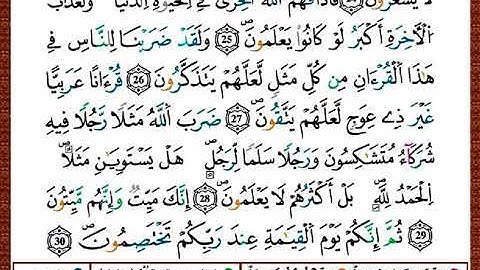 فَأَذَاقَهُمُ اللَّهُ الْخِزْيَ فِي الْحَيَوٰةِ الدُّنْيَا وَلَعَذَابُ
الْأَخِرَةِ أَكْبَرُ لَوْ كَانُوا يَعْلَمُونَ ۝25 وَلَقَدْ ضَرَبْنَا لِلنَّاسِ فِي
هَٰذَا الْقُرْءَانِ مِن كُلِّ مَثَلٍ لَّعَلَّهُمْ يَتَذَكَّرُونَ ۝26 قُرْءَانًا عَرَبِيًّا
غَيْرَ ذِي عِوَجٍ لَّعَلَّهُمْ يَتَّقُونَ ۝27 ضَرَبَ اللَّهُ مَثَلًا رَّجُلًا فِيهِ
شُرَكَاءُ مُتَشَاكِسُونَ وَرَجُلًا سَلَمًا لِّرَجُلٍ هَلْ يَسْتَوِيَانِ مَثَلًا
اِلْحَمْدُ لِلَّهِ بَلْ أَكْثَرُهُمْ لَا يَعْلَمُونَ ۝28 إِنَّكَ مَيِّتٌ وَإِنَّهُم مَّيِّتُونَ
۝29 ثُمَّ إِنَّكُمْ يَوْمَ الْقِيَٰمَةِ عِندَ رَبِّكُمْ تَخْتَصِمُونَ ۝30